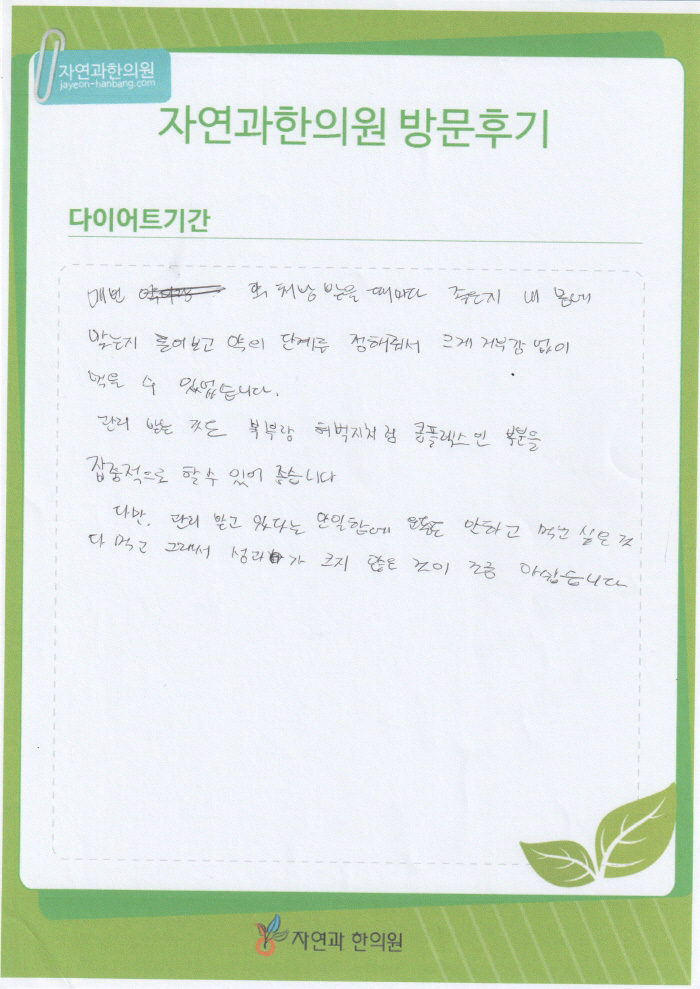 자연과한의원
jayeon-hanbang.com
자연과한의원 방문후기
다이어트기간
매번 약 처방 받을 때마다 좋은지 내 몸에
맞는지 물어보고 약의 단계를 정해줘서 크게 거부감 없이
먹을 수 있었습니다.
관리 받는 것도 복부랑 허벅지처럼 콤플렉스인 부분을
집중적으로 할 수 있어 좋습니다
다만, 관리 받고 있다는 안일함에 운동도 안하고 먹고 싶은 것
다 먹고 그래서 성과가 크지 않은 것이 조금 아쉽습니다
자연과 한의원